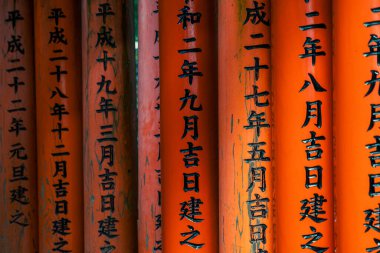 月吉日建
二年八月吉日建之
成二十七年五月吉日
和二年九月吉日建之
平成十九年三月吉日建之
平成二十八年十二月吉日建之
平成二十二年元旦建之